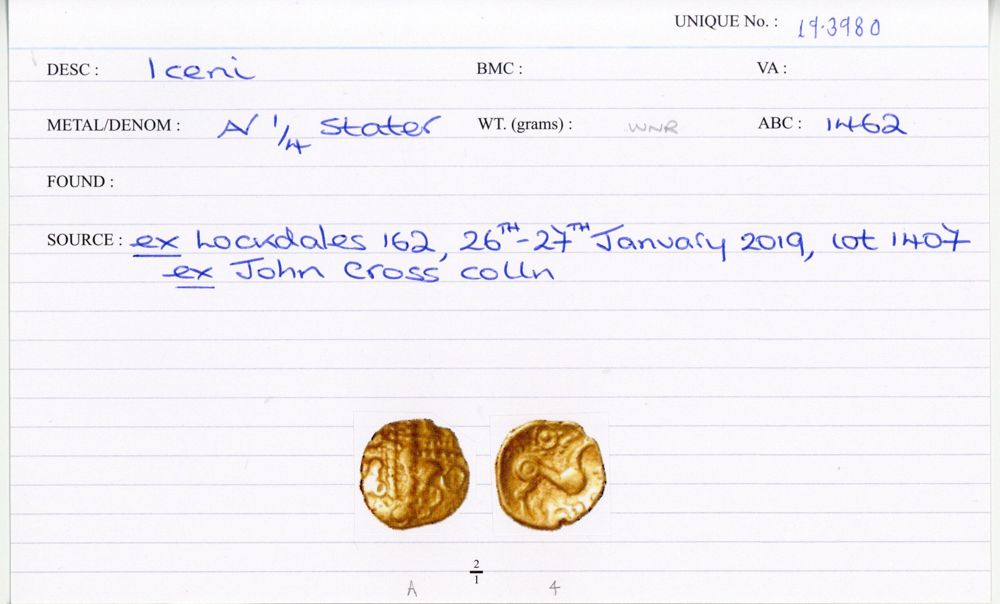 UNIQUE No. : 19.3980
DESC : Iceni BMC : VA :
METAL/DENOM : AV 1/4 Stater WT. (grams) : WNR ABC : 1462
FOUND :
SOURCE : ex Lockdales 162, 26TH-27TH January 2019, lot 1407
ex John Cross colln
2/1
A 4